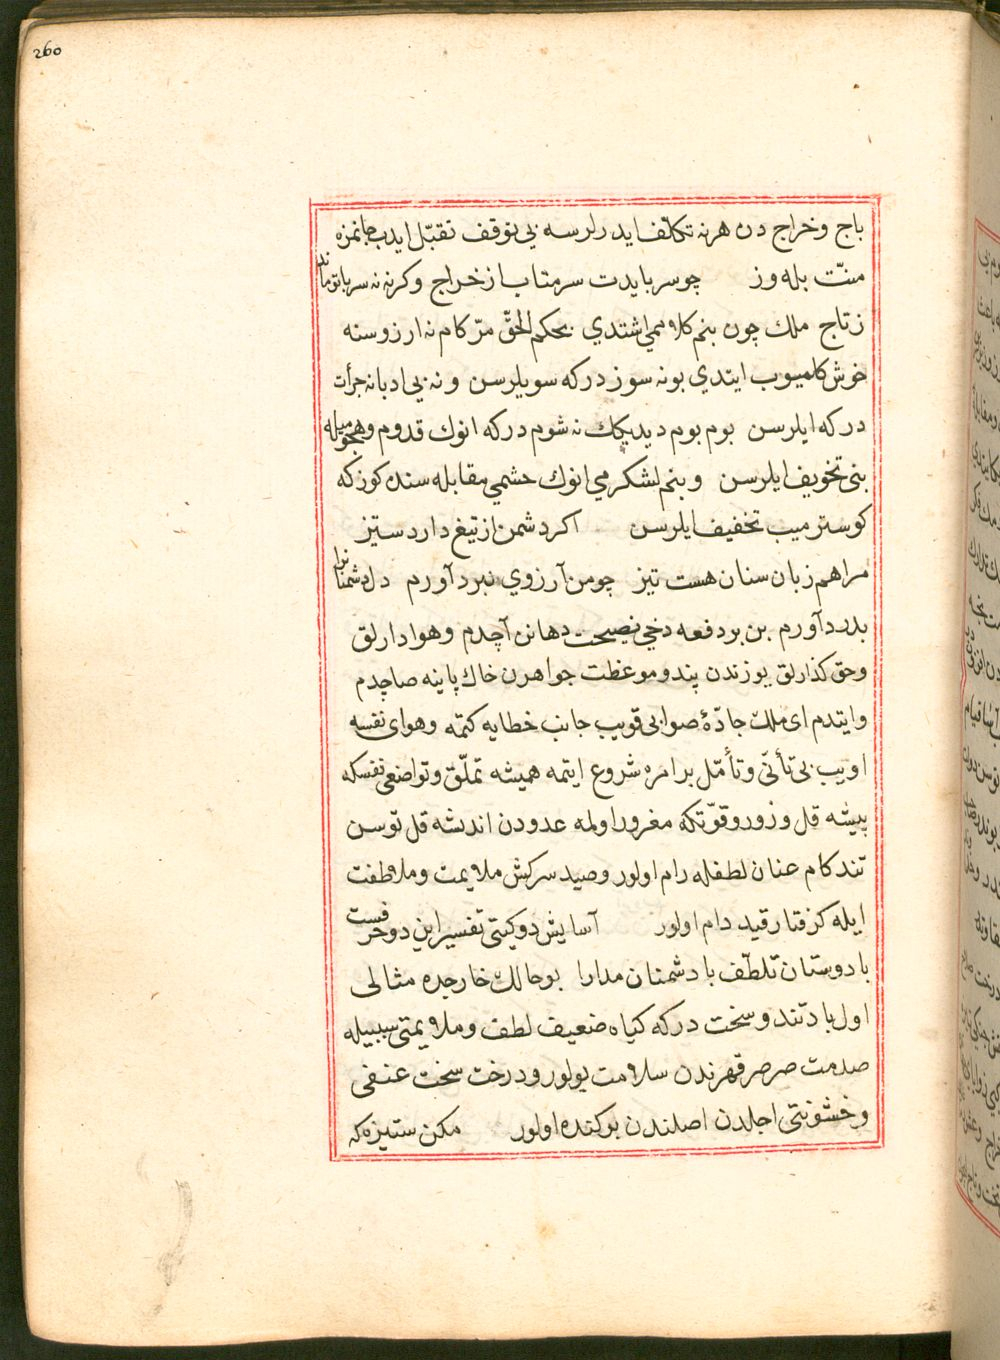 260
باج وخراج دن هرنه تكلف ايدرلرسه بى توقف تقبّل ايدب جانمزه
منّت بله وز چو سر بايدت سر متاب از خراج وكرنه نه سر باتو ماند
ز تاج ملك چون بنم كلاممي اشتدي بحكم الحقّ مرّ كام نه ارزوسنه
خوش كلميوب ايتدي بو نه سوزدركه سويلرسن ونه بى ادبانه جرأت
دركه ايلرسن بوم بوم ديديكك نه شوم دركه انوك قدوم وهجوميله
بنى تخويف ايلرسن وبنم لشكرمي انوك حشمي مقابله سنده كوزكه
كوسترميب تخفيف ايلرسن اكر دشمن از تيغ دارد ستيز
مرا هم زبان سنان هست تيز چو من آرزوي نبرد آورم دل دشمنانرا
بدرد آورم بن بر دفعه دخي نصيحت دهانن آچدم وهوادارلق
وحق كذارلق يوزندن پند وموعظت جواهرن خاك پاينه صاچدم
وايتدم اى ملك جادّۀ صوابى قويب جانب خطايه كتمه وهواى نفسه
اويب بى تأنّى وتأمّل بر امره شروع ايتمه هميشه تملّق وتواضعى نفسكه
پيشه قل وزور وقوّتكه مغرور اولمه عدودن انديشه قل توسن
تندكام عنان لطفله رام اولور وصيد سركش ملايمت وملاطفت
ايله كرفتار قيد دام اولور آسايش دو كيتى تفسير اين دو حرفست
با دوستان تلطّف با دشمنان مدارا بو حالك خارجده مثالى
اول باد تند وسخت دركه كياه ضعيف لطف وملايمتى سببيله
صدمت صرصر قهرندن سلامت بولور ودرخت سخت عنفى
وخشونتى اجلدن اصلندن بركنده اولور مكن ستيزه كه